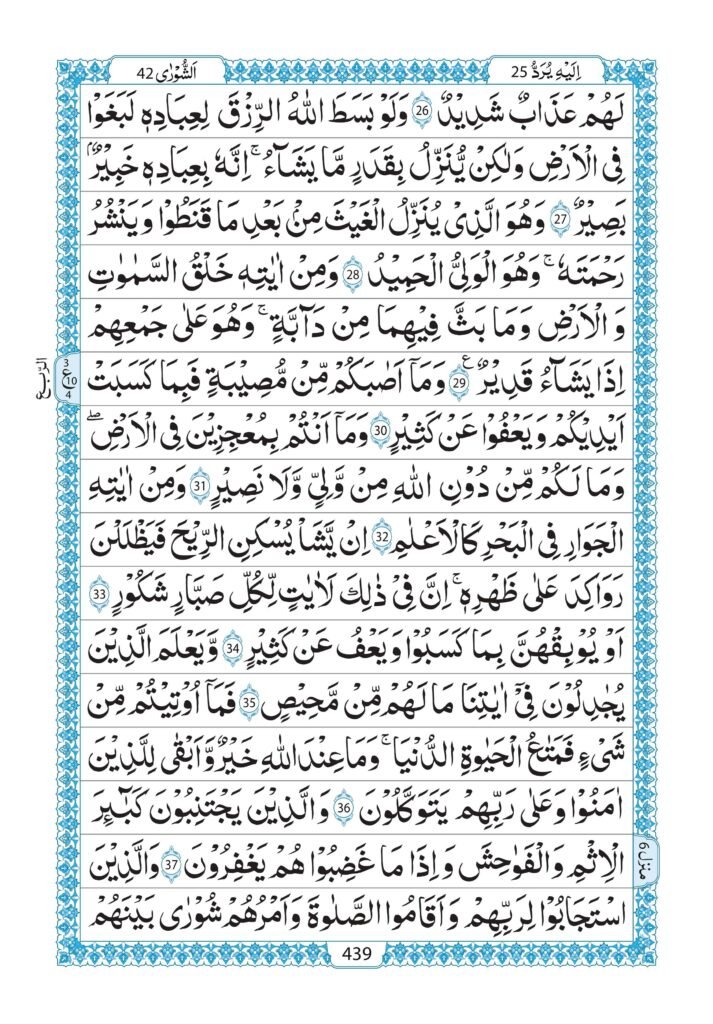 اَلشُّوْرٰى 42
اِلَيْهِ يُرَدُّ 25
لَهُمْ عَذَابٌ شَدِيْدٌ 26 وَلَوْ بَسَطَ اللّٰهُ الرِّزْقَ لِعِبَادِهٖ لَبَغَوْا
فِى الْاَرْضِ وَلٰكِنْ يُّنَزِّلُ بِقَدَرٍ مَّا يَشَآءُ ۚ اِنَّهٗ بِعِبَادِهٖ خَبِيْرٌۢ
بَصِيْرٌ 27 وَهُوَ الَّذِىْ يُنَزِّلُ الْغَيْثَ مِنْۢ بَعْدِ مَا قَنَطُوْا وَيَنْشُرُ
رَحْمَتَهٗ ۚ وَهُوَ الْوَلِىُّ الْحَمِيْدُ 28 وَمِنْ اٰيٰتِهٖ خَلْقُ السَّمٰوٰتِ
وَالْاَرْضِ وَمَا بَثَّ فِيْهِمَا مِنْ دَآبَّةٍ ۚ وَهُوَ عَلٰى جَمْعِهِمْ
اِذَا يَشَآءُ قَدِيْرٌ 29 ع وَمَآ اَصَابَكُمْ مِّنْ مُّصِيْبَةٍ فَبِمَا كَسَبَتْ
اَيْدِيْكُمْ وَيَعْفُوْا عَنْ كَثِيْرٍ 30 وَمَآ اَنْتُمْ بِمُعْجِزِيْنَ فِى الْاَرْضِ ۖ
وَمَا لَكُمْ مِّنْ دُوْنِ اللّٰهِ مِنْ وَّلِىٍّ وَّلَا نَصِيْرٍ 31 وَمِنْ اٰيٰتِهِ
الْجَوَارِ فِى الْبَحْرِ كَالْاَعْلَامِ 32 اِنْ يَّشَاْ يُسْكِنِ الرِّيْحَ فَيَظْلَلْنَ
رَوَاكِدَ عَلٰى ظَهْرِهٖ ۚ اِنَّ فِىْ ذٰلِكَ لَاٰيٰتٍ لِّكُلِّ صَبَّارٍ شَكُوْرٍ 33
اَوْ يُوْبِقْهُنَّ بِمَا كَسَبُوْا وَيَعْفُ عَنْ كَثِيْرٍ 34 وَّيَعْلَمَ الَّذِيْنَ
يُجَادِلُوْنَ فِىْٓ اٰيٰتِنَا مَا لَهُمْ مِّنْ مَّحِيْصٍ 35 فَمَآ اُوْتِيْتُمْ مِّنْ
شَىْءٍ فَمَتَاعُ الْحَيٰوةِ الدُّنْيَا ۚ وَمَا عِنْدَ اللّٰهِ خَيْرٌ وَّاَبْقٰى لِلَّذِيْنَ
اٰمَنُوْا وَعَلٰى رَبِّهِمْ يَتَوَكَّلُوْنَ 36 وَالَّذِيْنَ يَجْتَنِبُوْنَ كَبٰٓئِرَ
الْاِثْمِ وَالْفَوَاحِشَ وَاِذَا مَا غَضِبُوْا هُمْ يَغْفِرُوْنَ 37 وَالَّذِيْنَ
اسْتَجَابُوْا لِرَبِّهِمْ وَاَقَامُوا الصَّلٰوةَ وَاَمْرُهُمْ شُوْرٰى بَيْنَهُمْ
الربع
3
ع 10
4
منزل 6
439